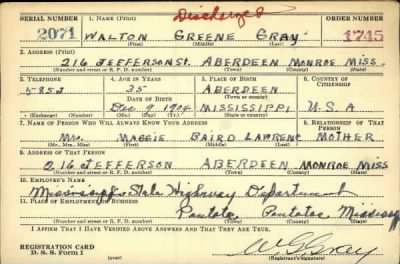 SERIAL NUMBER 1. NAME (Print) Discharged ORDER NUMBER
2071 WALTON GREENE GRAY 1745
(First) (Middle) (Last)
2. ADDRESS (Print)
216 JEFFERSON St. ABERDEEN MONROE MISS.
(Number and street or R. F. D. number) (Town) (County) (State)
3. TELEPHONE 4. AGE IN YEARS 5. PLACE OF BIRTH 6. COUNTRY OF CITIZENSHIP
5853 35 ABERDEEN
DATE OF BIRTH (Town or county)
Dec. 9 1904 MISSISSIPPI U.S.A
(Exchange) (Number) (Mo.) (Day) (Yr.) (State or country)
7. NAME OF PERSON WHO WILL ALWAYS KNOW YOUR ADDRESS 8. RELATIONSHIP OF THAT PERSON
Mrs. MAGGIE BAIRD LAWRENC MOTHER
(Mr., Mrs., Miss) (First) (Middle) (Last)
9. ADDRESS OF THAT PERSON
216 JEFFERSON ABERDEEN MONROE MISS
(Number and street or R. F. D. number) (Town) (County) (State)
10. EMPLOYER'S NAME
Mississippi State Highway Department
11. PLACE OF EMPLOYMENT OR BUSINESS
Pontotoc Mississippi
(Number and street or R. F. D. number) (Town) (County) (State)
I AFFIRM THAT I HAVE VERIFIED ABOVE ANSWERS AND THAT THEY ARE TRUE.
REGISTRATION CARD
D. S. S. Form 1 W G Gray
(Registrant's signature)